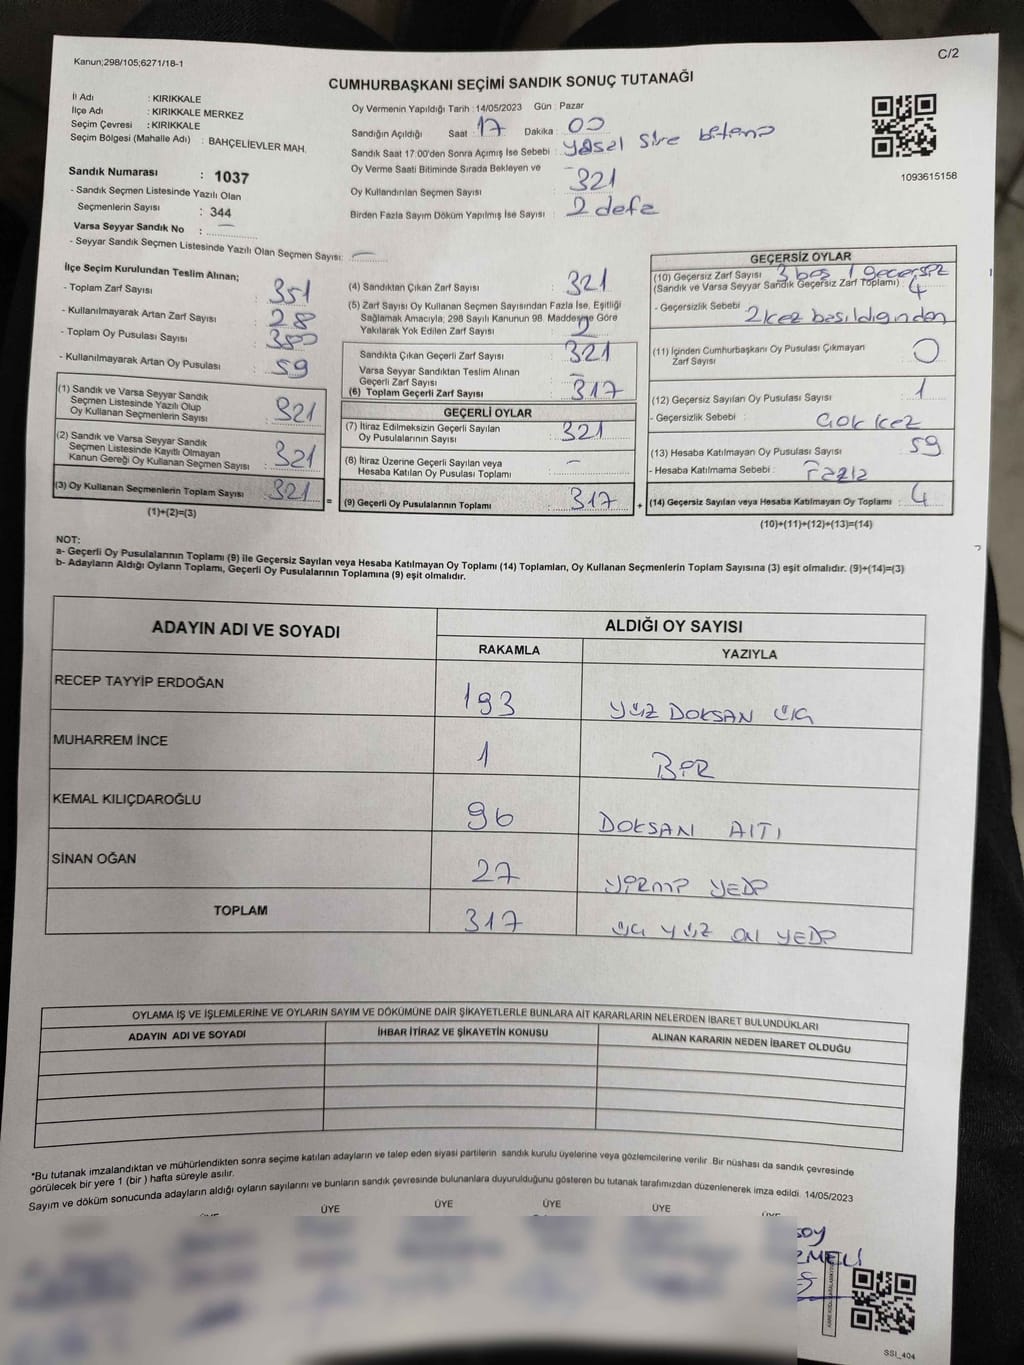 Kanun;298/105;6271/18-1
C/2
CUMHURBAŞKANI SEÇİMİ SANDIK SONUÇ TUTANAĞI
İl Adı : KIRIKKALE
İlçe Adı : KIRIKKALE MERKEZ
Seçim Çevresi : KIRIKKALE
Seçim Bölgesi (Mahalle Adı) : BAHÇELİEVLER MAH.
Sandık Numarası : 1037
- Sandık Seçmen Listesinde Yazılı Olan
Seçmenlerin Sayısı : 344
Varsa Seyyar Sandık No : –
- Seyyar Sandık Seçmen Listesinde Yazılı Olan Seçmen Sayısı: –
Oy Vermenin Yapıldığı Tarih : 14/05/2023 Gün : Pazar
Sandığın Açıldığı Saat : 17 Dakika : 00
Sandık Saat 17:00'den Sonra Açımış İse Sebebi : yasal süre bitimi
Oy Verme Saati Bitiminde Sırada Bekleyen ve –
Oy Kullandırılan Seçmen Sayısı : 321
Birden Fazla Sayım Döküm Yapılmış İse Sayısı : 2 defa
1093615158
İlçe Seçim Kurulundan Teslim Alınan;
- Toplam Zarf Sayısı : 351
- Kullanılmayarak Artan Zarf Sayısı : 28
- Toplam Oy Pusulası Sayısı : 380
- Kullanılmayarak Artan Oy Pusulası : 59
(1) Sandık ve Varsa Seyyar Sandık
Seçmen Listesinde Yazılı Olup
Oy Kullanan Seçmenlerin Sayısı : 321
(2) Sandık ve Varsa Seyyar Sandık
Seçmen Listesinde Kayıtlı Olmayan
Kanun Gereği Oy Kullanan Seçmen Sayısı : 321
(3) Oy Kullanan Seçmenlerin Toplam Sayısı : 321
(1)+(2)=(3)
(4) Sandıktan Çıkan Zarf Sayısı : 321
(5) Zarf Sayısı Oy Kullanan Seçmen Sayısından Fazla İse, Eşitliği
Sağlamak Amacıyla; 298 Sayılı Kanunun 98. Maddesine Göre
Yakılarak Yok Edilen Zarf Sayısı : 2
Sandıkta Çıkan Geçerli Zarf Sayısı : 321
Varsa Seyyar Sandıktan Teslim Alınan
Geçerli Zarf Sayısı : –
(6) Toplam Geçerli Zarf Sayısı : 317
GEÇERLİ OYLAR
(7) İtiraz Edilmeksizin Geçerli Sayılan
Oy Pusulalarının Sayısı : 321
(8) İtiraz Üzerine Geçerli Sayılan veya
Hesaba Katılan Oy Pusulası Toplamı : –
= (9) Geçerli Oy Pusulalarının Toplamı : 317 +
GEÇERSİZ OYLAR
(10) Geçersiz Zarf Sayısı 3 boş 1 geçersiz
(Sandık ve Varsa Seyyar Sandık Geçersiz Zarf Toplamı) : 4
- Geçersizlik Sebebi : 2 kez basıldığından
(11) İçinden Cumhurbaşkanı Oy Pusulası Çıkmayan
Zarf Sayısı : 0
(12) Geçersiz Sayılan Oy Pusulası Sayısı : 1
- Geçersizlik Sebebi : Çok kez
(13) Hesaba Katılmayan Oy Pusulası Sayısı : 59
- Hesaba Katılmama Sebebi : Fazla
(14) Geçersiz Sayılan veya Hesaba Katılmayan Oy Toplamı : 4
(10)+(11)+(12)+(13)=(14)
NOT:
a- Geçerli Oy Pusulalarının Toplamı (9) ile Geçersiz Sayılan veya Hesaba Katılmayan Oy Toplamı (14) Toplamları, Oy Kullanan Seçmenlerin Toplam Sayısına (3) eşit olmalıdır. (9)+(14)=(3)
b- Adayların Aldığı Oyların Toplamı, Geçerli Oy Pusulalarının Toplamına (9) eşit olmalıdır.
ADAYIN ADI VE SOYADI
ALDIĞI OY SAYISI
RAKAMLA YAZIYLA
RECEP TAYYİP ERDOĞAN 193 YÜZ DOKSAN ÜÇ
MUHARREM İNCE 1 BİR
KEMAL KILIÇDAROĞLU 96 DOKSAN ALTI
SİNAN OĞAN 27 YİRMİ YEDİ
TOPLAM 317 ÜÇ YÜZ ON YEDİ
OYLAMA İŞ VE İŞLEMLERİNE VE OYLARIN SAYIM VE DÖKÜMÜNE DAİR ŞİKAYETLERLE BUNLARA AİT KARARLARIN NELERDEN İBARET BULUNDUKLARI
ADAYIN ADI VE SOYADI İHBAR İTİRAZ VE ŞİKAYETİN KONUSU ALINAN KARARIN NEDEN İBARET OLDUĞU
*Bu tutanak imzalandıktan ve mühürlendikten sonra seçime katılan adayların ve talep eden siyasi partilerin sandık kurulu üyelerine veya gözlemcilerine verilir. Bir nüshası da sandık çevresinde
görülecek bir yere 1 (bir) hafta süreyle asılır.
Sayım ve döküm sonucunda adayların aldığı oyların sayılarını ve bunların sandık çevresinde bulunanlara duyurulduğunu gösteren bu tutanak tarafımızdan düzenlenerek imza edildi. 14/05/2023
ÜYE ÜYE ÜYE ÜYE
SSI_404